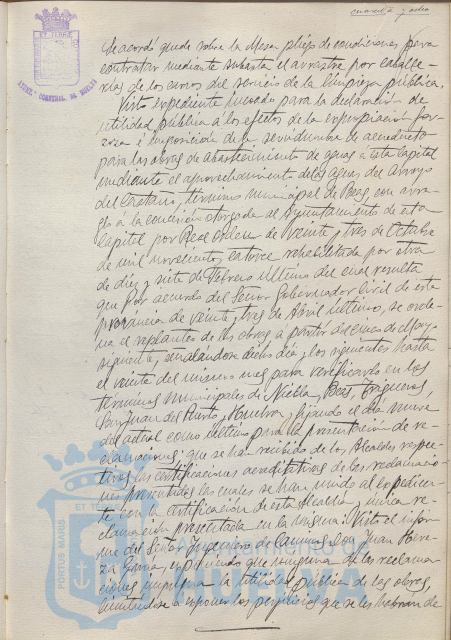 cuarenta y ocho
Se acordó quede sobre la Mesa pliego de condiciones para
contratar mediante subasta el arrastre por caballe-
rías de los carros del servicio de la limpieza pública.
Visto expediente incoado para la declaración de
utilidad pública a los efectos de la expropiación for-
zosa é imposición de la servidumbre de acueducto
para las obras de abastecimiento de aguas á esta Capital
mediante el aprovechamiento de las aguas del arroyo
del Castaño, término municipal de Beas con arre-
glo á la concesión otorgada al Ayuntamiento de esta
Capital por Real orden de veinte y tres de Octubre
de mil novecientos catorce rehabilitada por otra
de diez y siete de Febrero último del cual resulta
que por acuerdo del Señor Gobernador Civil de esta
provincia de veinte y tres de Abril último, se orde-
na el replanteo de las obras a partir del de Mayo
siguiente, señalándose dicho día y los siguientes hasta
el veinte del mismo mes para verificarlo en los
términos municipales de Niebla, Beas, Trigueros,
San Juan del Puerto, Huelva, fijando el día nueve
del actual como último para la presentación de re-
clamaciones; que se han recibido de los Alcaldes respec-
tivos las certificaciones acreditativas de las reclamacio-
nes presentadas las cuales se han unido al expedien-
te con la certificación de esta Alcaldía, única re-
clamación presentada en la misma. Visto el infor-
me del Señor Ingeniero de Caminos Don Juan
exponiendo que ninguna de las reclama-
ciones impugna la utilidad pública de las obras,
limitándose a exponer los perjuicios que se les habrán de
AYUNT. CONSTNAL. DE HUELVA
PORTUS MARIS
ET TERRE
Ayuntamiento de
HUELVA